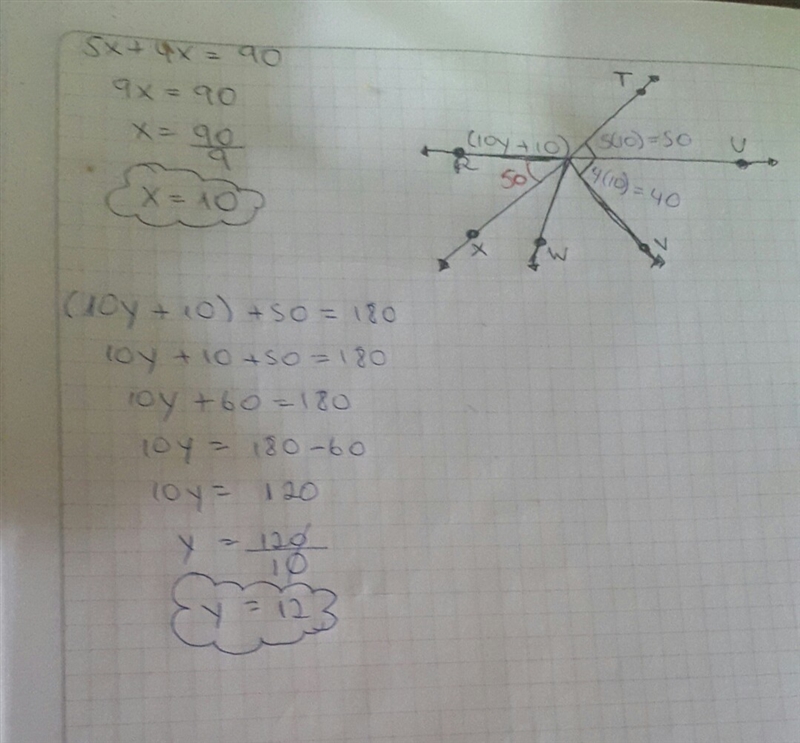 5x+4x = 90
9x = 90
x = 90
9
x = 10
T
(10y+10)
5(10)=50
R
U
50
4(10)=40
X
W
V
(10y + 10) + 50 = 180
10y + 10 + 50 = 180
10y + 60 = 180
10y = 180 - 60
10y = 120
y = 120
10
y = 12